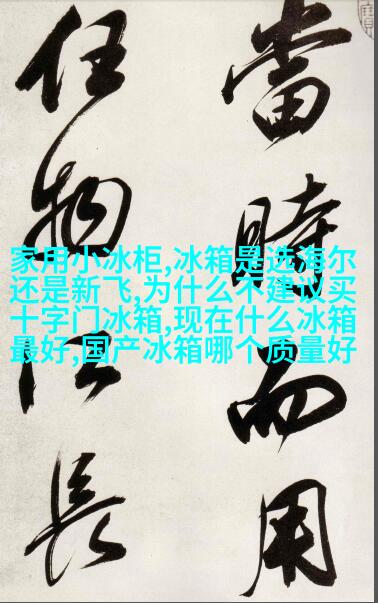 當時而用
任物長
家用小冰柜,冰箱是选海尔
还是新飞,为什么不建议买
十字门冰箱,现在什么冰箱
最好,国产冰箱哪个质量好